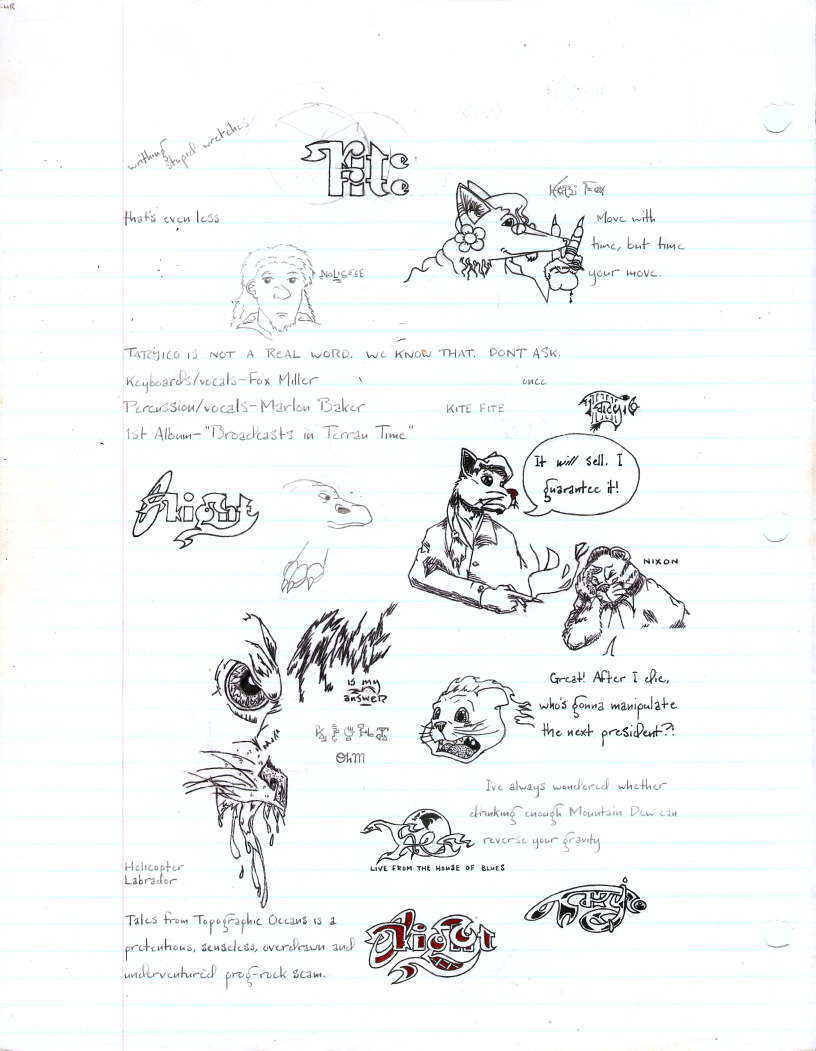 writhing
stupid wretches
Kite
Fite
that's even less
Kobi Fox
Move with
time, but time
your move.
NOLIGEGE
TARYICO IS NOT A REAL WORD. WE KNOW THAT. DONT ASK.
Keyboards/vocals-Fox Miller
once
Percussion/vocals-Marlon Baker
KITE FITE
1st Album-"Broadcasts in Terran Time"
It will sell. I
guarantee it!
NIXON
is my
answer
Great! After I die,
who's gonna manipulate
the next president?!
OhM
Ive always wondered whether
drinking enough Mountain Dew can
reverse your gravity
LIVE FROM THE HOUSE OF BLUES
Helicopter
Labrador
Tales from Topographic Oceans is a
pretentious, senseless, overdrawn and
underventured prog-rock scam.